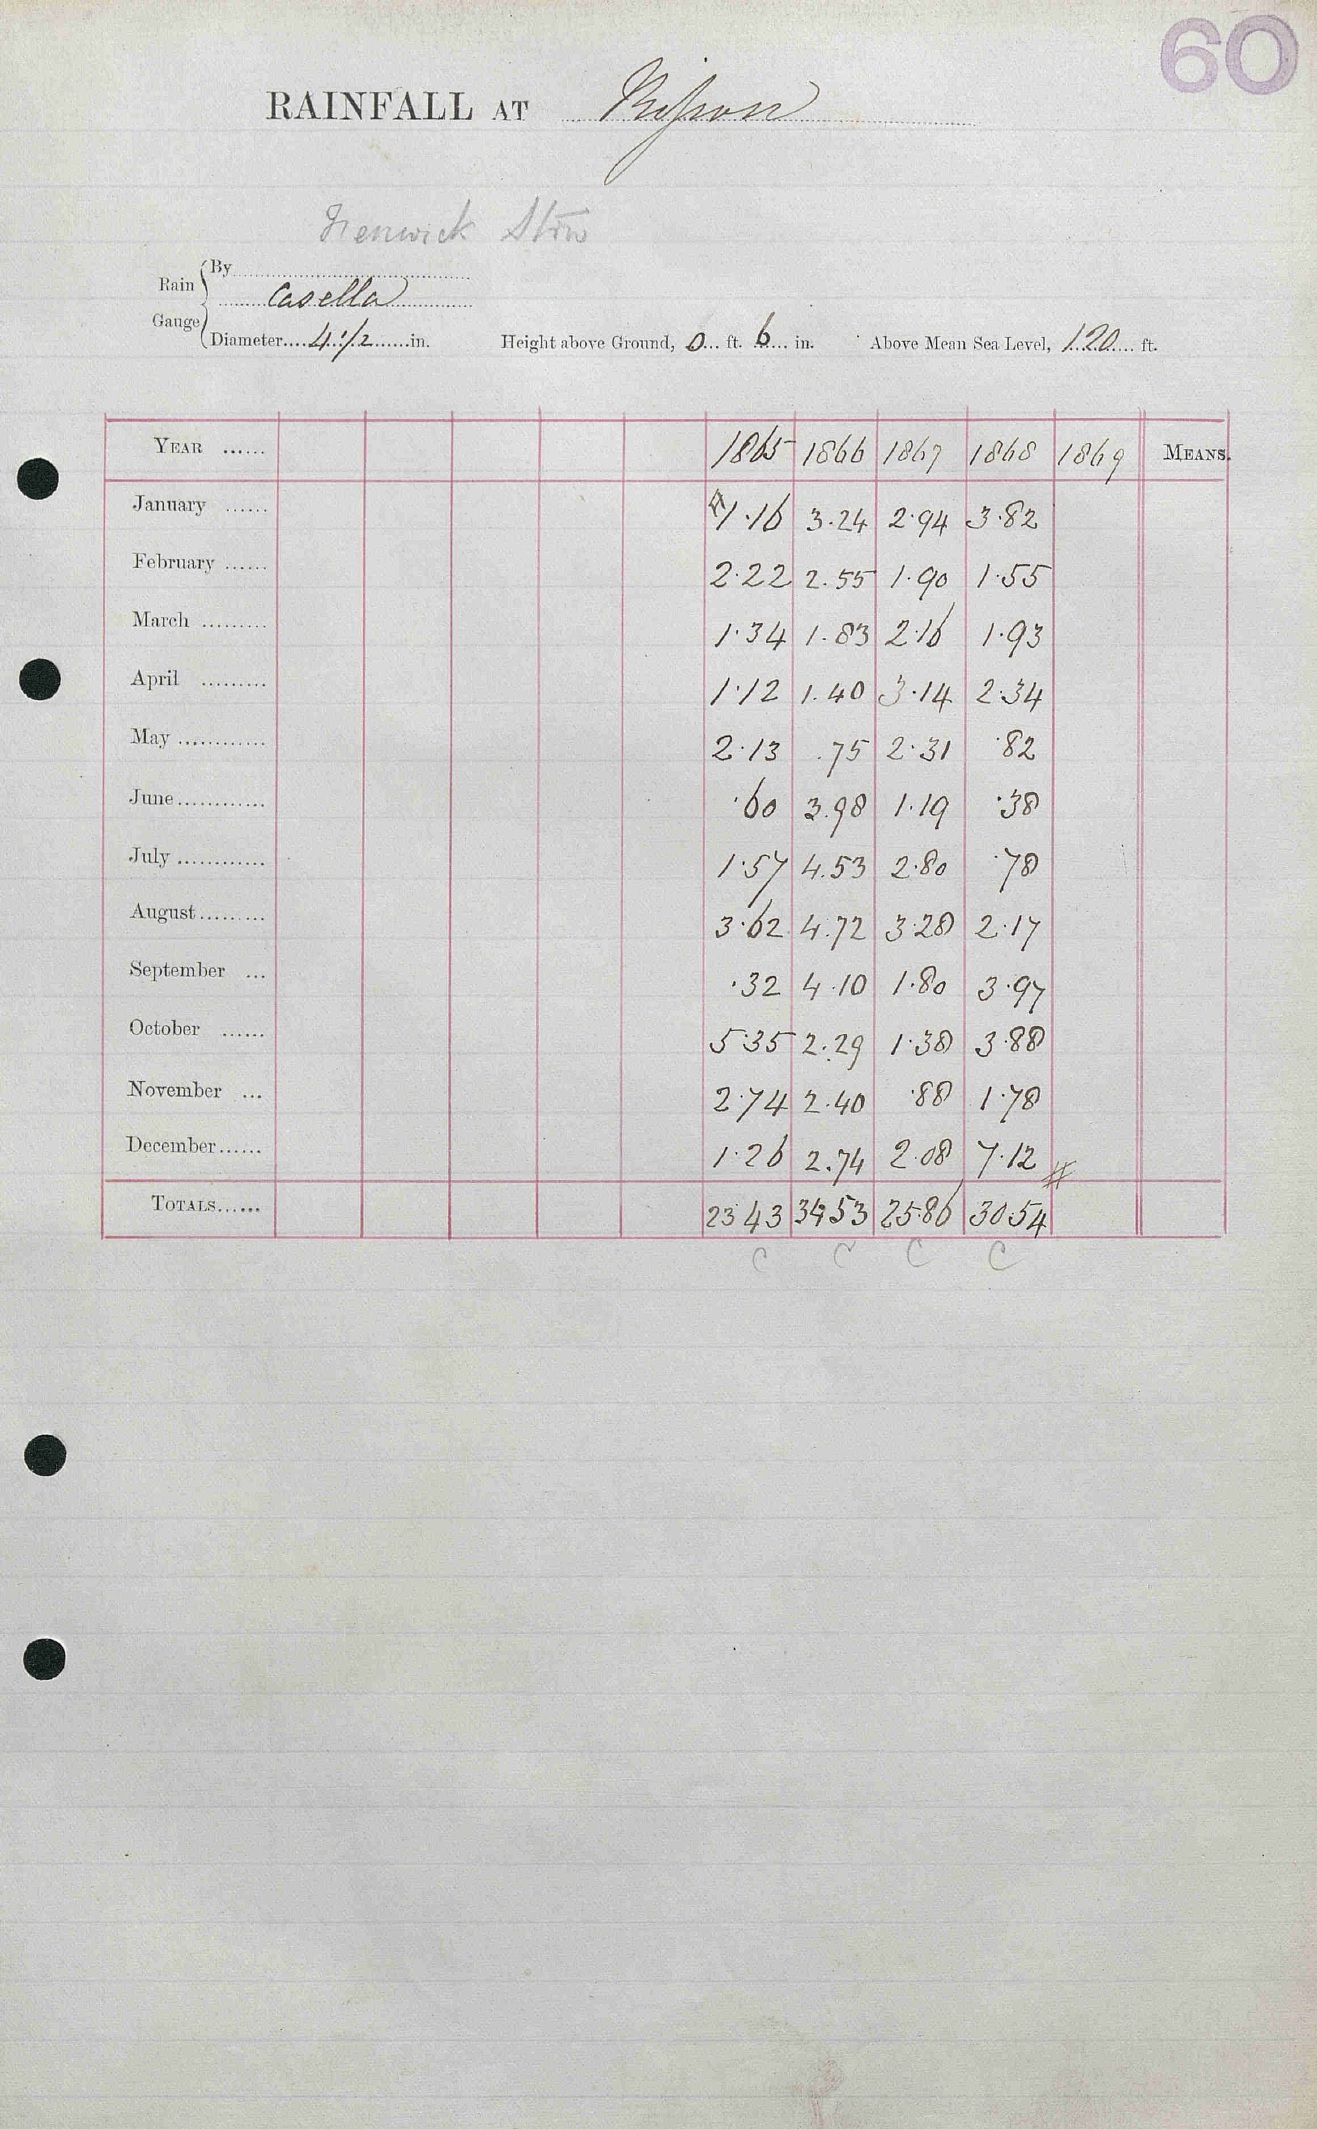 60
RAINFALL AT Ripon
Fenwick Stow
Rain Gauge By
Casella
Diameter....4 1/2.......in. Height above Ground, 0... ft. 6... in. Above Mean Sea Level, 120.... ft.
YEAR ...... 1865 1866 1867 1868 1869 MEANS.
January ...... 1.16 3.24 2.94 3.82
February ...... 2.22 2.55 1.90 1.55
March ......... 1.34 1.83 2.16 1.93
April ......... 1.12 1.40 3.14 2.34
May ............ 2.13 .75 2.31 .82
June............ .60 3.98 1.19 .38
July ............ 1.57 4.53 2.80 .78
August......... 3.62 4.72 3.28 2.17
September ... .32 4.10 1.80 3.97
October ...... 5.35 2.29 1.38 3.88
November ... 2.74 2.40 .88 1.78
December...... 1.26 2.74 2.08 7.12 #
TOTALS...... 23 43 34 53 25.86 30.54
C C C C